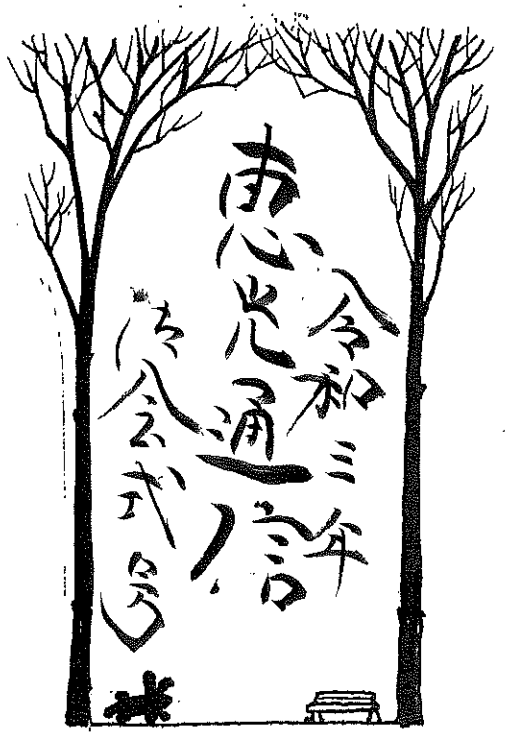 令和三年
恵光通信
御会式号